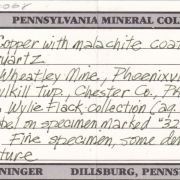 PENNSYLVANIA MINERAL COL
Copper with malachite coat
uartz
Wheatley Mine, Phoenixv
ylkill Twp. Chester Co. PA
Wylie Flack collection (ag.
bel on specimen marked "32
Fine specimen, some den
ture
NINGER DILLSBURG, PENNSY